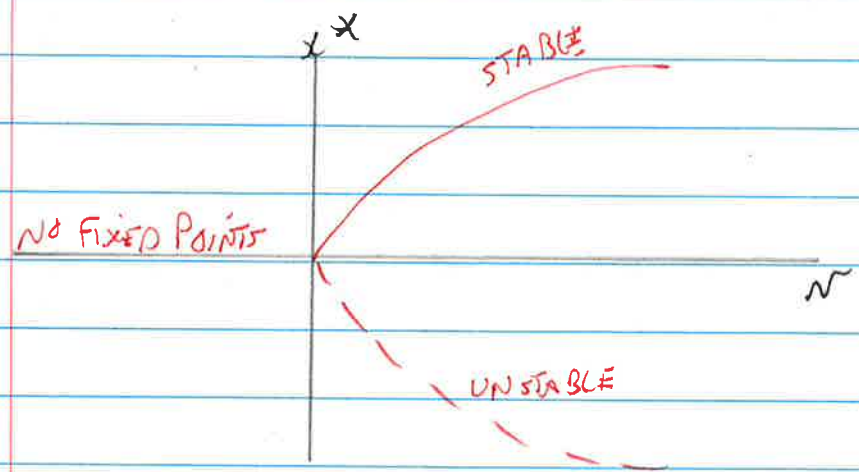 x*
STABLE
NO FIXED POINTS
r
UNSTABLE